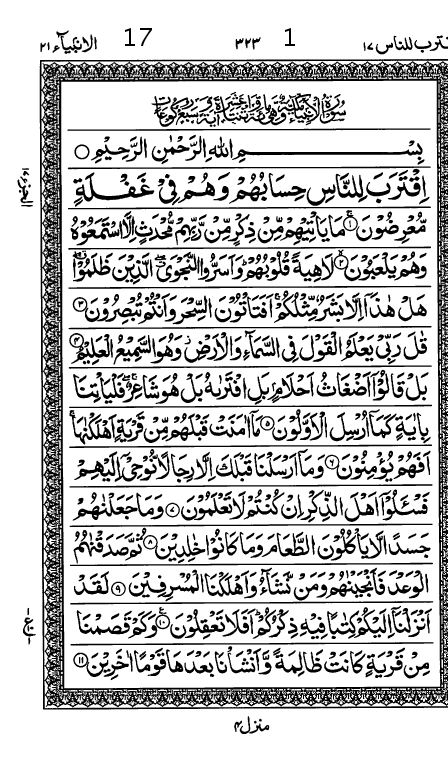 اقترب للناس ۱۷ 1 ۳۲۳ 17 الانبیآء ۲۱
سورة الانبیآء مکیة وھی مائة واثنتا عشرة اٰیة وسبع رکوعات
بِسْمِ اللهِ الرَّحْمٰنِ الرَّحِیْمِ ○
اِقْتَرَبَ لِلنَّاسِ حِسَابُهُمْ وَهُمْ فِیْ غَفْلَةٍ
مُّعْرِضُوْنَ ۚ﴿۱﴾ مَا یَاْتِیْهِمْ مِّنْ ذِكْرٍ مِّنْ رَّبِّهِمْ مُّحْدَثٍ اِلَّا اسْتَمَعُوْهُ
وَهُمْ یَلْعَبُوْنَ ۙ﴿۲﴾ لَاهِیَةً قُلُوْبُهُمْ ؕ وَاَسَرُّوا النَّجْوَی ۖۗ الَّذِیْنَ ظَلَمُوْا ۖۗ
هَلْ هٰذَاۤ اِلَّا بَشَرٌ مِّثْلُكُمْ ۚ اَفَتَاْتُوْنَ السِّحْرَ وَاَنْتُمْ تُبْصِرُوْنَ ﴿۳﴾
قٰلَ رَبِّیْ یَعْلَمُ الْقَوْلَ فِی السَّمَآءِ وَالْاَرْضِ ؗ وَهُوَ السَّمِیْعُ الْعَلِیْمُ ﴿۴﴾
بَلْ قَالُوْۤا اَضْغَاثُ اَحْلَامٍۭ بَلِ افْتَرٰىهُ بَلْ هُوَ شَاعِرٌ ۖۚ فَلْیَاْتِنَا
بِاٰیَةٍ كَمَاۤ اُرْسِلَ الْاَوَّلُوْنَ ﴿۵﴾ مَاۤ اٰمَنَتْ قَبْلَهُمْ مِّنْ قَرْیَةٍ اَهْلَكْنٰهَا ۚ
اَفَهُمْ یُؤْمِنُوْنَ ﴿۶﴾ وَمَاۤ اَرْسَلْنَا قَبْلَكَ اِلَّا رِجَالًا نُّوْحِیْۤ اِلَیْهِمْ
فَسْـَٔلُوْۤا اَهْلَ الذِّكْرِ اِنْ كُنْتُمْ لَا تَعْلَمُوْنَ ﴿۷﴾ وَمَا جَعَلْنٰهُمْ
جَسَدًا لَّا یَاْكُلُوْنَ الطَّعَامَ وَمَا كَانُوْا خٰلِدِیْنَ ﴿۸﴾ ثُمَّ صَدَقْنٰهُمُ
الْوَعْدَ فَاَنْجَیْنٰهُمْ وَمَنْ نَّشَآءُ وَاَهْلَكْنَا الْمُسْرِفِیْنَ ﴿۹﴾ لَقَدْ
اَنْزَلْنَاۤ اِلَیْكُمْ كِتٰبًا فِیْهِ ذِكْرُكُمْ ؕ اَفَلَا تَعْقِلُوْنَ ﴿۱۰﴾ وَكَمْ قَصَمْنَا
مِنْ قَرْیَةٍ كَانَتْ ظَالِمَةً وَّاَنْشَاْنَا بَعْدَهَا قَوْمًا اٰخَرِیْنَ ﴿۱۱﴾
منزل ۴